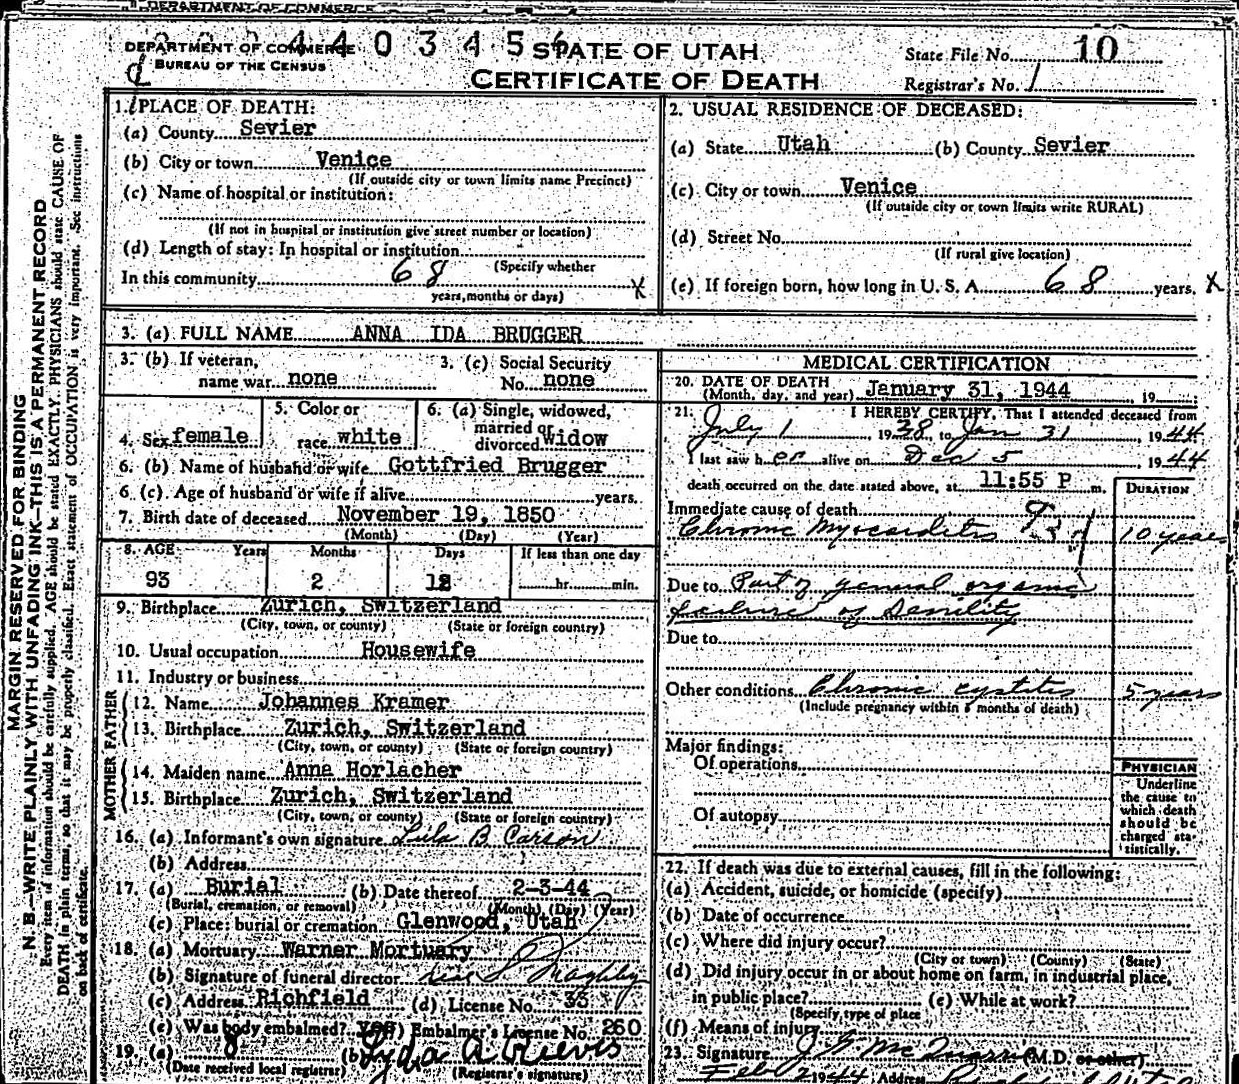 DEPARTMENT OF COMMERCE
DEPARTMENT OF COMMERCE
BUREAU OF THE CENSUS
STATE OF UTAH
CERTIFICATE OF DEATH
State File No. 10
Registrar's No. 1
MARGIN RESERVED FOR BINDING
N. B.—WRITE PLAINLY WITH UNFADING INK—THIS IS A PERMANENT RECORD
Every item of information should be carefully supplied. AGE should be stated EXACTLY. PHYSICIANS should state CAUSE OF
DEATH in plain terms, so that it may be properly classified. Exact statement of OCCUPATION is very important. See instructions
on back of certificate.
1. PLACE OF DEATH:
(a) County Sevier
(b) City or town Venice
(If outside city or town limits name Precinct)
(c) Name of hospital or institution:
(If not in hospital or institution give street number or location)
(d) Length of stay: In hospital or institution
(Specify whether
In this community 68 X
years, months or days)
2. USUAL RESIDENCE OF DECEASED:
(a) State Utah (b) County Sevier
(c) City or town Venice
(If outside city or town limits write RURAL)
(d) Street No.
(If rural give location)
(e) If foreign born, how long in U. S. A. 68 years. X
3. (a) FULL NAME ANNA IDA BRUGGER
3. (b) If veteran,
name war none
3. (c) Social Security
No. none
4. Sex female
5. Color or
race white
6. (a) Single, widowed,
married or
divorced Widow
6. (b) Name of husband or wife Gottfried Brugger
6 (c). Age of husband or wife if alive years.
7. Birth date of deceased November 19, 1850
(Month) (Day) (Year)
8. AGE Years Months Days If less than one day
93 2 12 hr. min.
9. Birthplace Zurich, Switzerland
(City, town, or county) (State or foreign country)
10. Usual occupation Housewife
11. Industry or business
FATHER
12. Name Johannes Kramer
13. Birthplace Zurich, Switzerland
(City, town, or county) (State or foreign country)
MOTHER
14. Maiden name Anna Horlacher
15. Birthplace Zurich, Switzerland
(City, town, or county) (State or foreign country)
16. (a) Informant's own signature Lula B. Carson
(b) Address
17. (a) Burial (b) Date thereof 2-3-44
(Burial, cremation, or removal) (Month) (Day) (Year)
(c) Place: burial or cremation Glenwood, Utah
18. (a) Mortuary Warner Mortuary
(b) Signature of funeral director
(c) Address Richfield (d) License No. 33
(e) Was body embalmed? yes (f) Embalmer's License No. 260
19. (a) 8 (b) Lyda A Reevis
(Date received local registrar) (Registrar's signature)
MEDICAL CERTIFICATION
20. DATE OF DEATH January 31, 1944, 19
(Month, day, and year)
21. I HEREBY CERTIFY, That I attended deceased from
July 1, 1938, to Jan 31, 1944
I last saw her alive on Dec 5, 1944
death occurred on the date stated above, at 11:55 P m.
DURATION
Immediate cause of death
Chronic Myocarditis 10 years
Due to Part of general organic
failure of Senility
Due to
Other conditions Chronic cystitis 5 years
(Include pregnancy within 3 months of death)
Major findings:
Of operations
Of autopsy
PHYSICIAN
Underline
the cause to
which death
should be
charged sta-
tistically.
22. If death was due to external causes, fill in the following:
(a) Accident, suicide, or homicide (specify)
(b) Date of occurrence
(c) Where did injury occur?
(City or town) (County) (State)
(d) Did injury occur in or about home on farm, in industrial place,
in public place? (e) While at work?
(Specify type of place
(f) Means of injury
23. Signature J. G. McQuarrie M.D. or other)
Feb 2 1944 Address